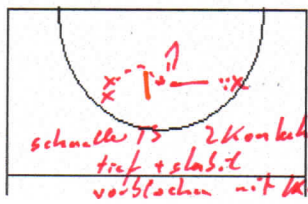 schneller TS 2 Kontakt
tief + stabil
vorblocken mit